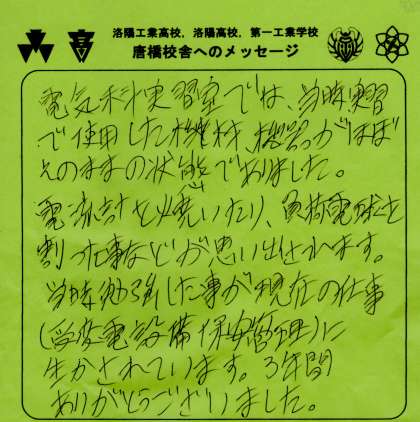 洛陽工業高校，洛陽高校，第一工業学校
唐橋校舎へのメッセージ
電気科実習室では、当時実習
で使用した機材、機器がほぼ
そのままの状態でありました。
電流計を焼いたり、負荷電球を
割った事などが思い出されます。
当時勉強した事が現在の仕事
(受変電設備保安管理)に
生かされています。3年間
ありがとうございました。